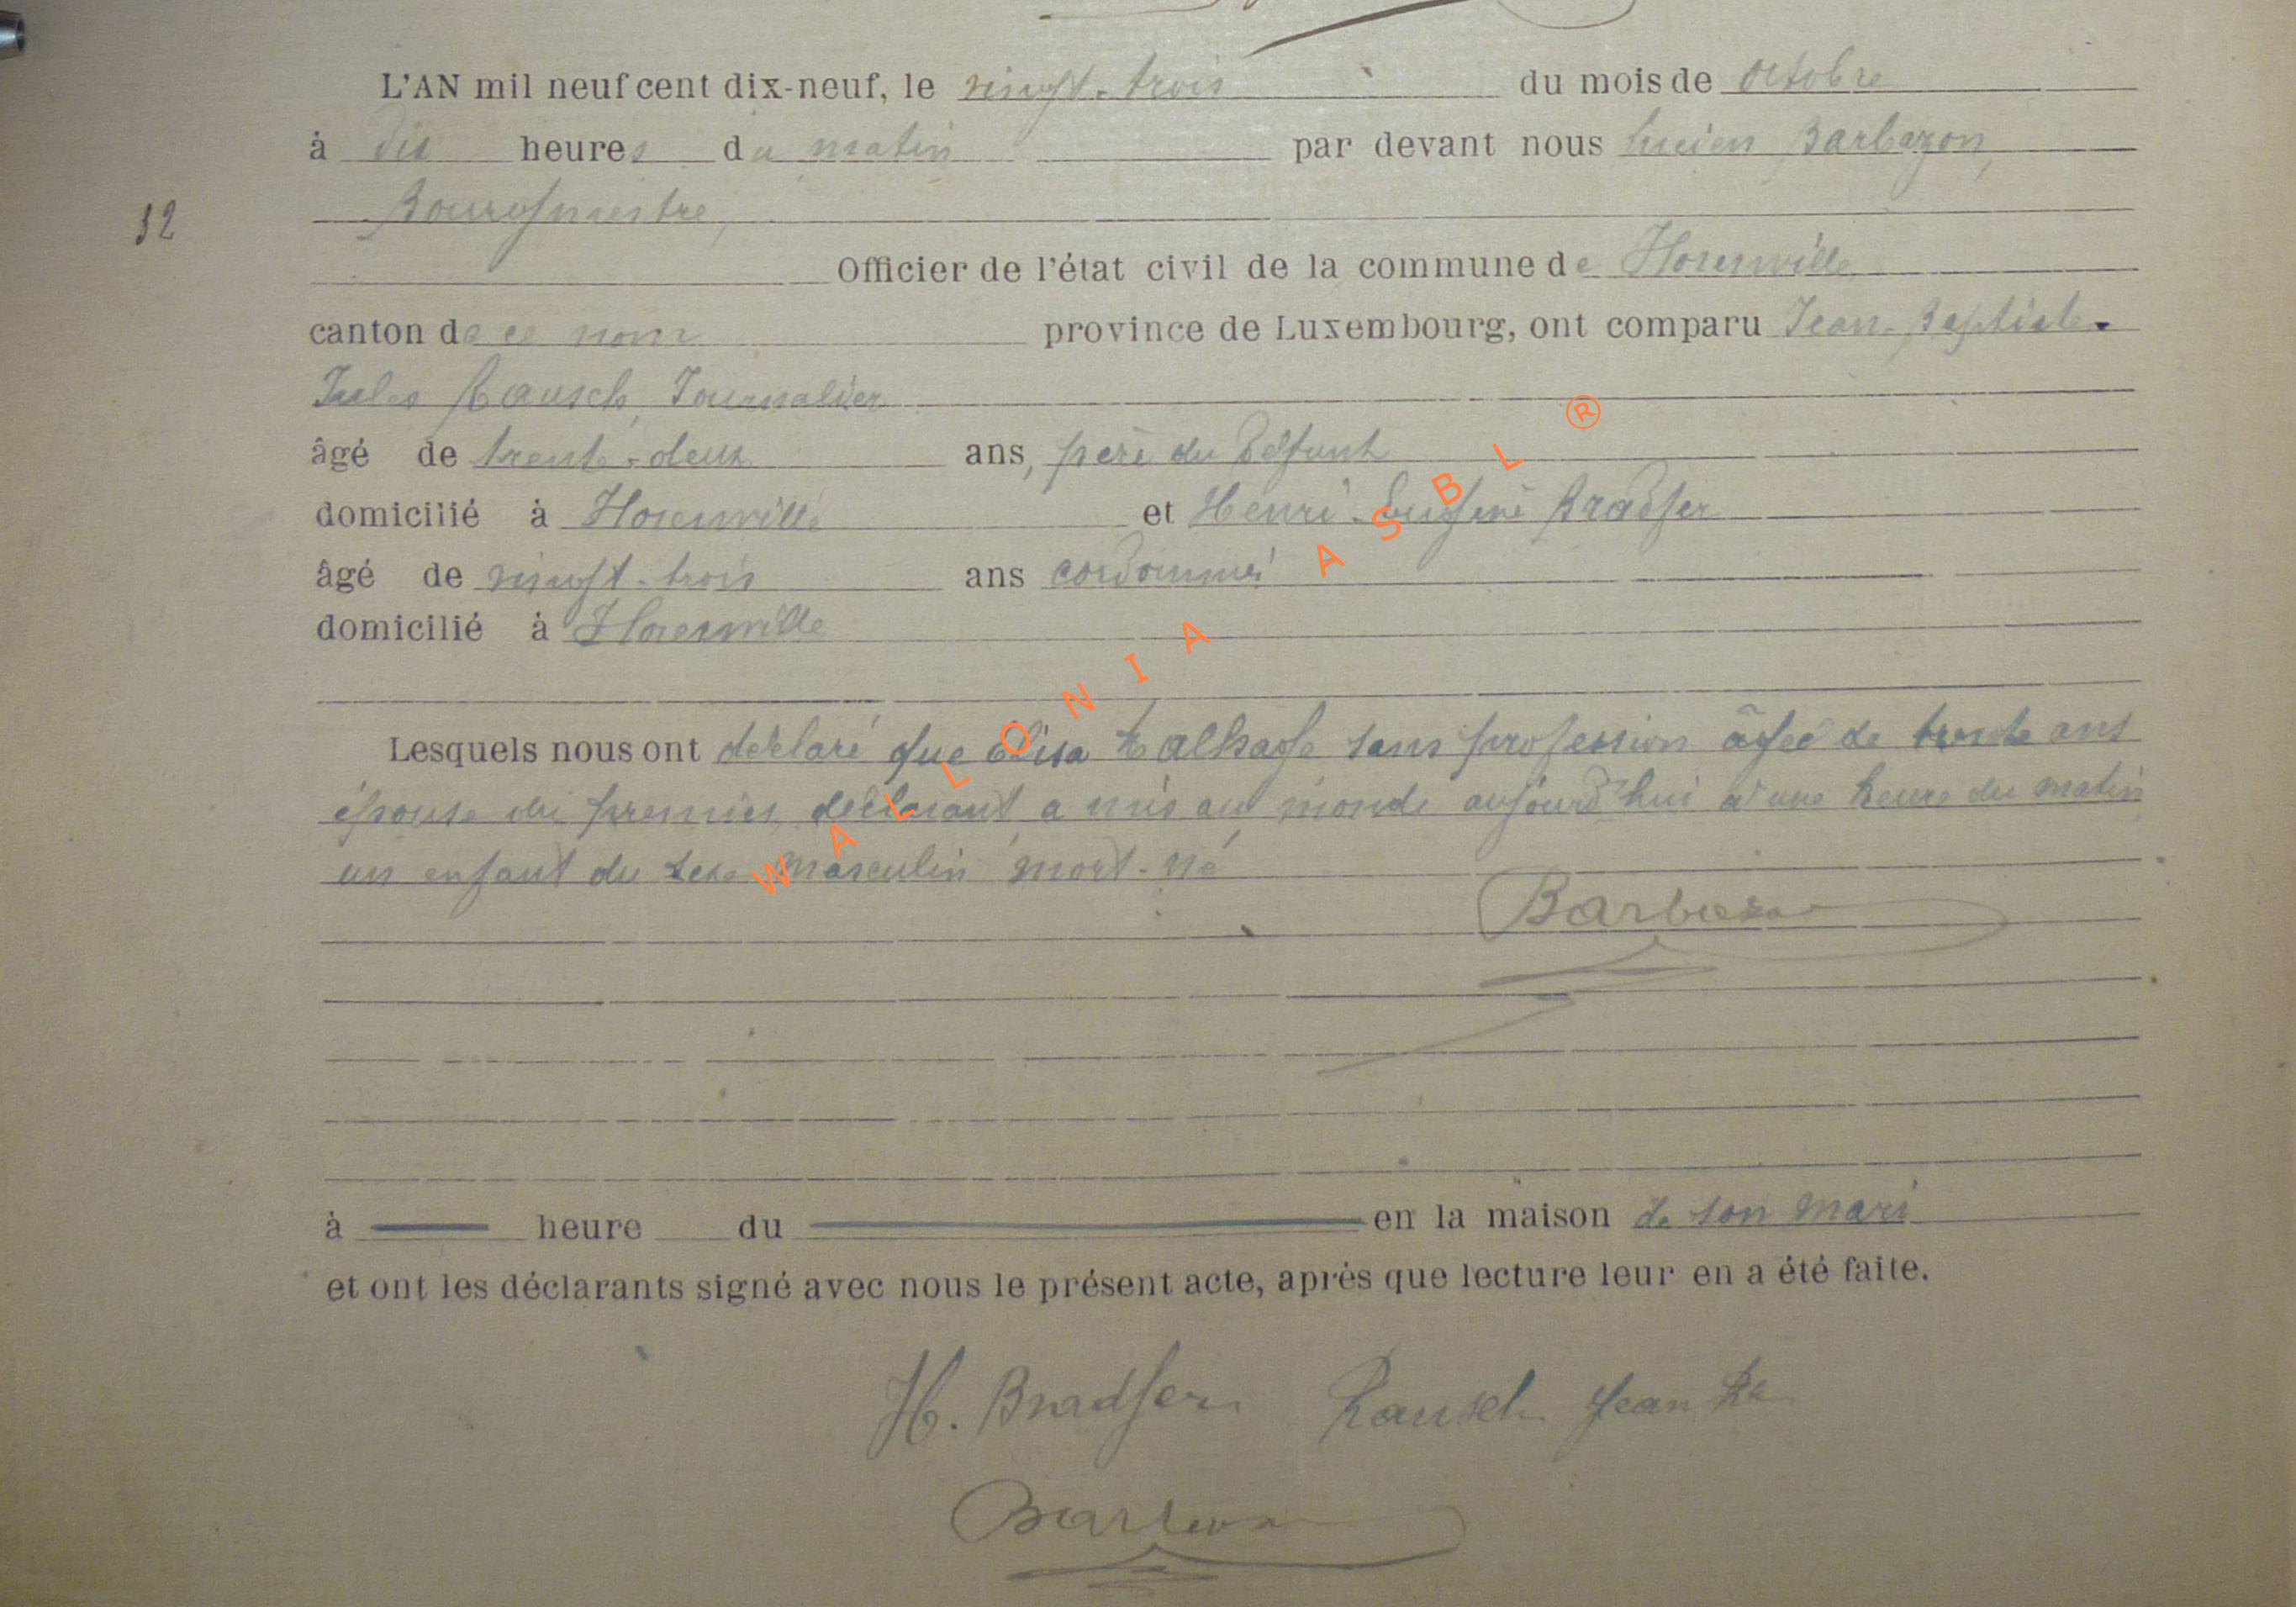 L'AN mil neuf cent dix-neuf, le vingt-trois du mois de octobre
à dix heures du matin par devant nous Lucien Barbazon,
Bourgmestre,
32
Officier de l'état civil de la commune de Florenville
canton de ce nom province de Luxembourg, ont comparu Jean-Baptiste-
Jules Rausch, Journalier
âgé de trente-deux ans, père du défunt
domicilié à Florenville et Henri-Eugène Bradfer
âgé de vingt-trois ans cordonnier
domicilié à Florenville
Lesquels nous ont déclaré que Elisa sans profession âgée de trente ans
épouse du premier déclarant a mis au monde aujourd'hui à une heure du matin
un enfant du sexe masculin mort-né
Barbazon
à heure du en la maison de son mari
et ont les déclarants signé avec nous le présent acte, après que lecture leur en a été faite.
H. Bradfer Rausch Jean Ba
Barbazon
WALLONIA ASBL ®